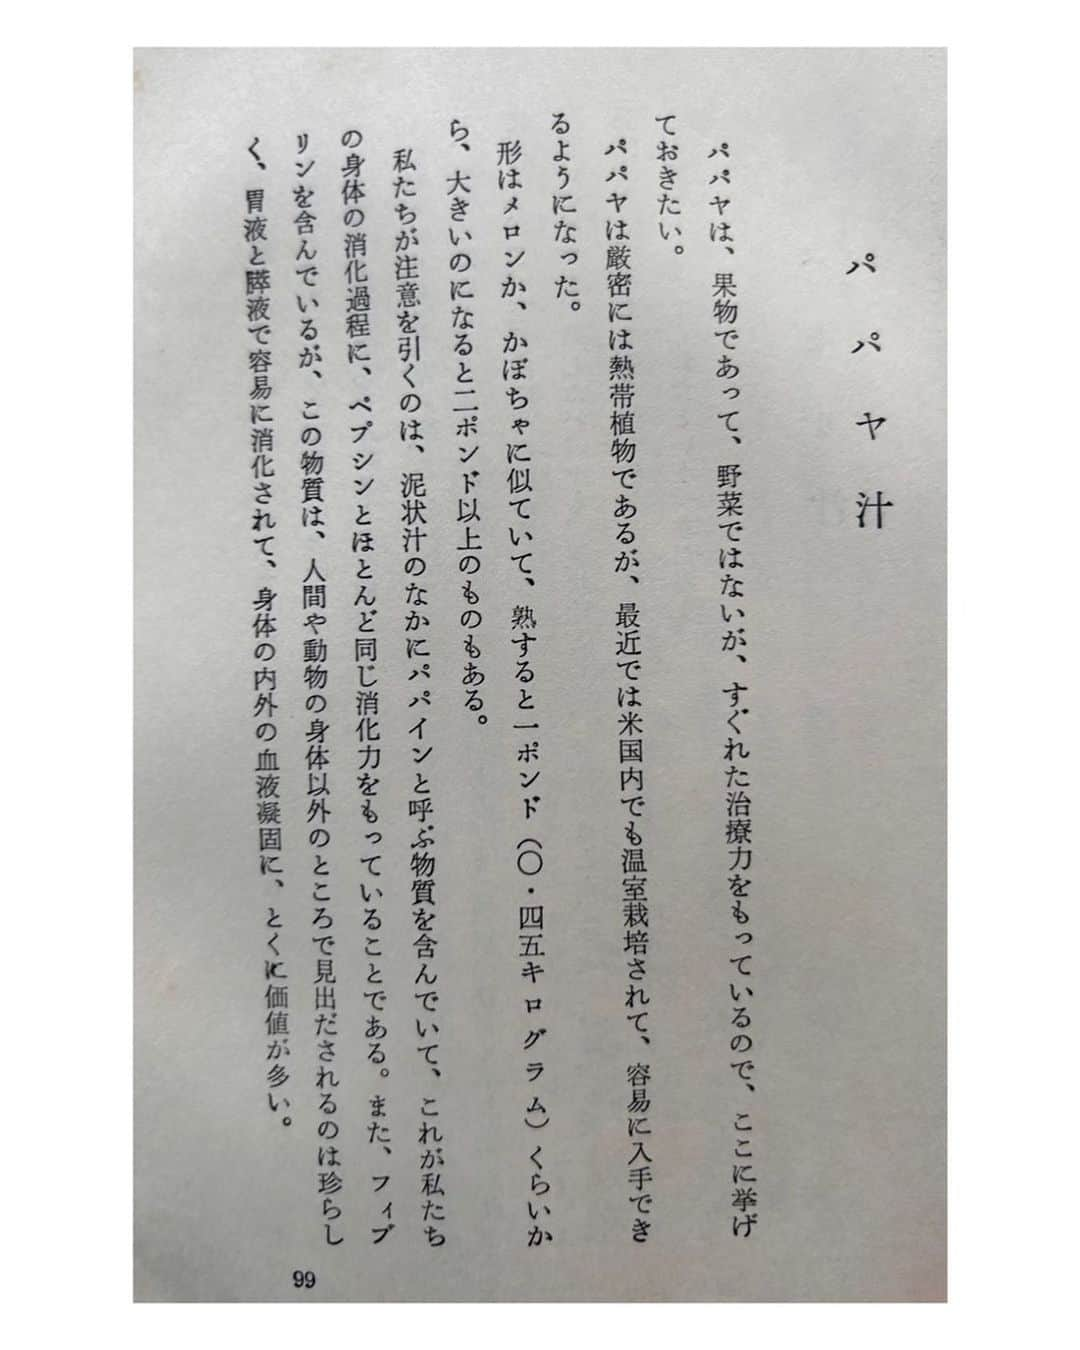 パパヤ汁
パパヤは、果物であって、野菜ではないが、すぐれた治療力をもっているので、ここに挙げ
ておきたい。
パパヤは厳密には熱帯植物であるが、最近では米国内でも温室栽培されて、容易に入手でき
るようになった。
形はメロンか、かぼちゃに似ていて、熟すると一ポンド（〇・四五キログラム）くらいか
ら、大きいのになると二ポンド以上のものもある。
私たちが注意を引くのは、泥状汁のなかにパパインと呼ぶ物質を含んでいて、これが私たち
の身体の消化過程に、ペプシンとほとんど同じ消化力をもっていることである。また、フィブ
リンを含んでいるが、この物質は、人間や動物の身体以外のところで見出だされるのは珍らし
く、胃液と膵液で容易に消化されて、身体の内外の血液凝固に、とくに価値が多い。
99